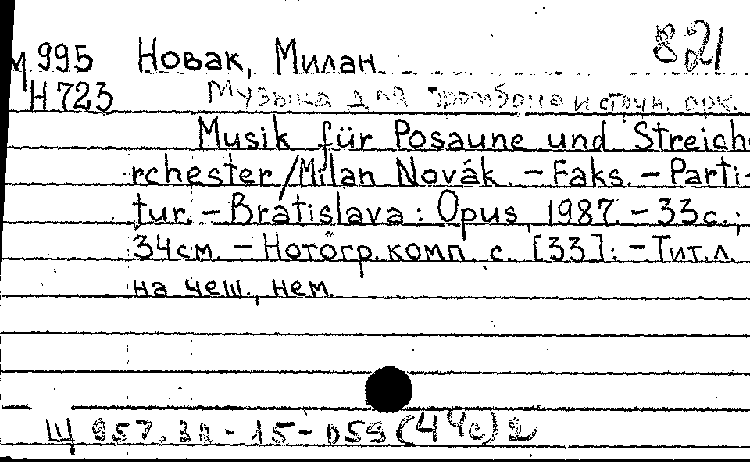 М 995 Новак, Милан 821
Н 723 Музыка для тромбона и струн. орк.
Musik für Posaune und Streicho
rchester/Milan Novák. – Faks. – Parti-
tur. – Bratislava : Opus, 1987. – 33с. ;
34см. – Нотогр. комп. с. [33]. – Тит. л.
на чеш., нем.
Щ 957.38-15-059(4Чс)2